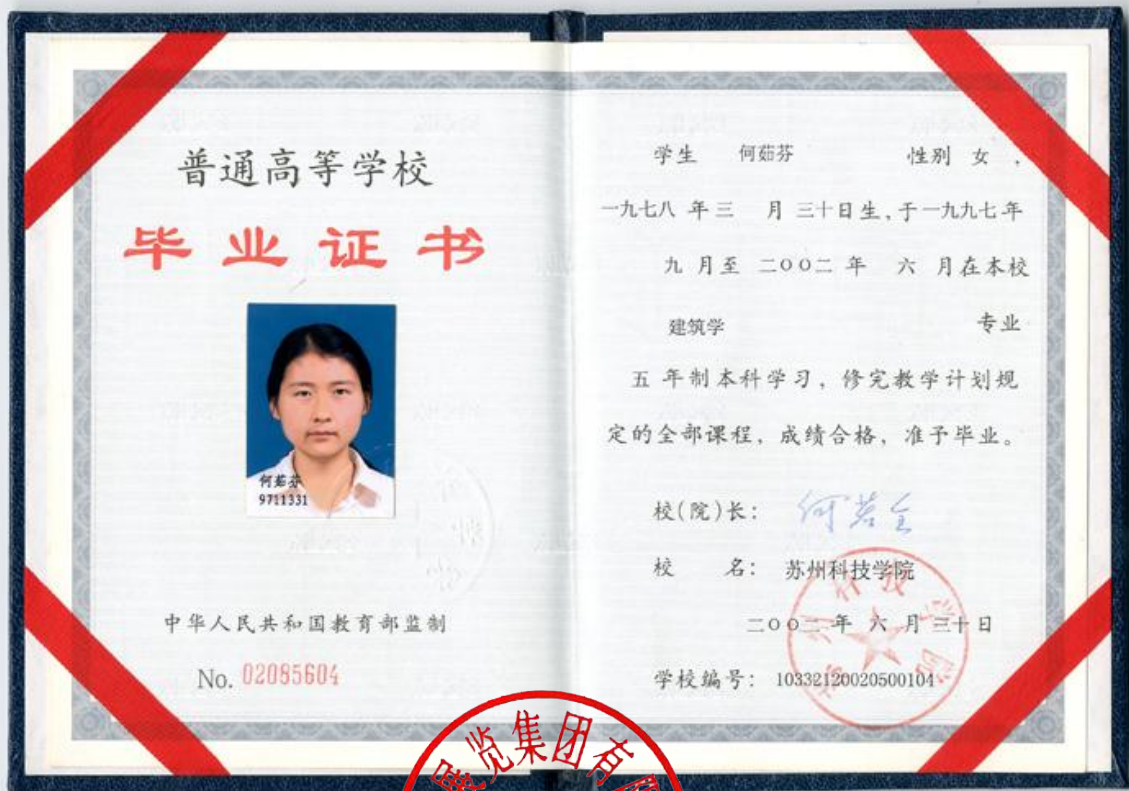 普通高等学校
毕业证书
何茹芬
9711331
中华人民共和国教育部监制
No. 02085604
学生 何茹芬 性别 女 ,
一九七八 年 三 月 三十日生,于一九九七年
九 月至 二〇〇二 年 六 月在本校
建筑学 专业
五 年制本科学习，修完教学计划规
定的全部课程，成绩合格，准予毕业。
校(院)长： 何若全
校 名： 苏州科技学院
二〇〇二年 六 月 三十日
学校编号： 10332120020500104
苏州科技学院
展览集团有限